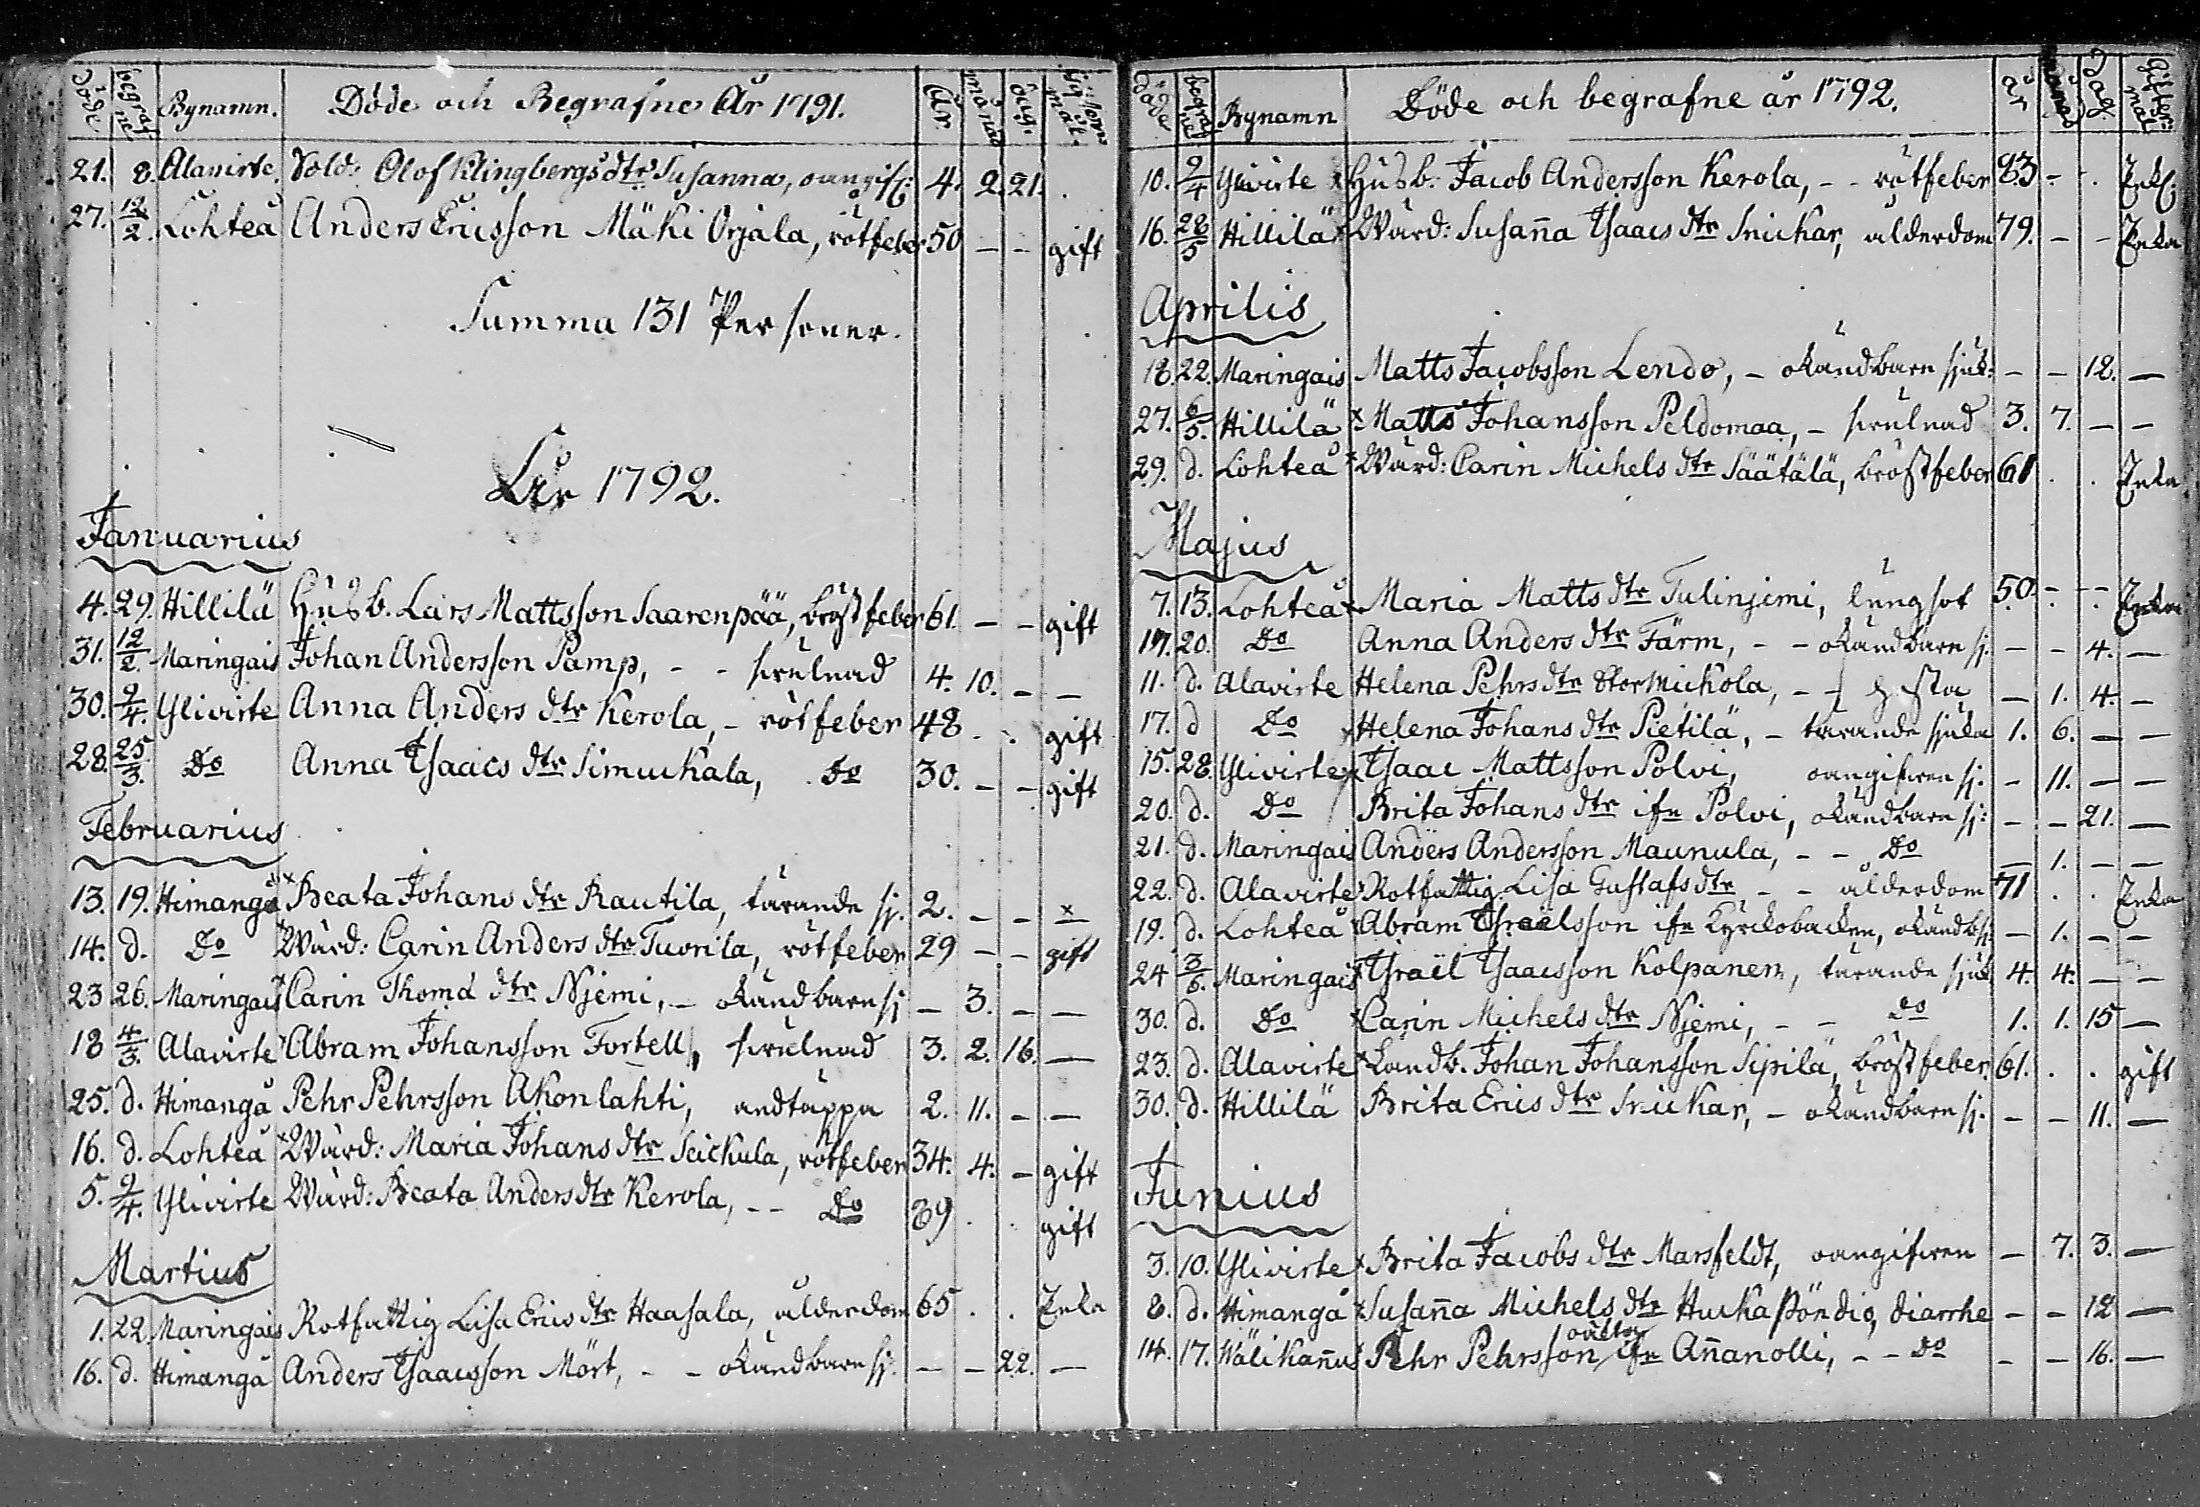 Döde
begrafne
Bynamn.
Döde och Begrafne År 1791.
År.
månad
dag.
21. 8. Alavirte. Sold: Olof Klingbergs dtr Susanna, oangif: 4. 2. 21.
27. 12/2. Lohteå Anders Ericsson Mäki Orjala, rötfeber 50 – – gift
Summa 131 Personer.
År 1792.
Januarius
4. 29. Hillilä Husb. Lars Mattsson Saarenpää, bröstfeber 61. – – gift
31. 12/2. Maringais Johan Andersson Pamp, - - strulnad 4. 10. – –
30. 9/4. Ylivirte Anna Anders dtr Kerola, - rötfeber 48 . . gift
28. 25/3. Do Anna Isaacs dtr Simukala, Do 30. – – gift
Februarius
13. 19. Himangå Beata Johans dtr Rautila, tärande sj. 2. – – x
14. d. Do Wärd: Carin Anders dtr Tuorila, rötfeber 29 – – gift
23 26. Maringais Carin Thomæ dtr Njemi, - okändbare sj – 3. – –
18 4/3. Alavirte Abram Johansson Fortell, strulnad 3. 2. 16. –
25. d. Himangå Pehr Pehrsson Akonlahti, andtäppa 2. 11. – –
16. d. Lohteå Wärd: Maria Johans dtr Seickula, rötfeber 34. 4. – gift
5. 9/4. Ylivirte Wärd: Beata Anders dtr Kerola, - - Do 89 . . gift
Martius
1. 22 Maringais Rotfattig Lisa Erics dtr Haasala, ålderdom 65 . . Enka
16. d. Himangå Anders Isaacsson Mört, - - okändbare sj. – – 22. –
döde
begrafne
Bynamn
Döde och begrafne år 1792.
år
månad
dag
Giftermål
10. 9/4 Ylivirte Husb. Jacob Andersson Kerola, - - rötfeber 83 – . Enkl:
16. 28/5 Hillilä Wärd: Susaña Isaacs dtr Snickar, ålderdom 79. – – Enka
Aprilis
18. 22. Maringais Matts Jacobsson Lendo, - okändbare sjuk: – – 12. –
27. 6/5. Hillilä Matts Johansson Peldomaa, - strulnad 3. 7. – –
29. d. Lohteå Wärd: Carin Michels dtr Säätälä, bröstfeber 61 . . Enka
Majus
7. 13. Lohteå Maria Matts dtr Tulinjemi, lungsot 50. – – Enka
17. 20. Do Anna Anders dtr Färm, - - okändbare sj. – – 4. –
11. d. Alavirte Helena Pehrs dtr Stormickola, - - hosta – 1. 4. –
17. d Do Helena Johans dtr Pietilä, - tärande sjuka 1. 6. – –
15. 28. Ylivirte Isaac Mattsson Polvi, oangifwen sj. – 11. – –
20. d. Do Brita Johans dtr ifn Polvi, okändbare sj: – – 21. –
21. d. Maringais Anders Andersson Maunula, - - Do – 1. – –
22. d. Alavirte Rotfattig Lisa Gustafs dtr - - ålderdom 71 . . Enka
19. d. Lohteå Abram Israëlsson ifn Kyrckobacken, okändb sj: – 1. – –
24 3/6. Maringais Israël Isaacsson Kolpanen, tärande sjuk 4. 4. – –
30. d. Do Carin Michels dtr Njemi, - - Do 1. 1. 15 –
23. d. Alavirte Landb. Johan Johansson Sipilä, bröstfeber 61. . . gift
30. d. Hillilä Brita Erics dtr Snickar, - okändbare sj. – – 11. –
Junius
3. 10. Ylivirte Brita Jacobs dtr Marsfeldt, oangifwen – 7. 3. –
8. d. Himangå Susaña Michels dtr Huckapöndiö, diarrhe – – 12 –
14. 17. Wälikañu Pehr Pehrsson oäkta ifn Añanolli, - - Do – – 16. –